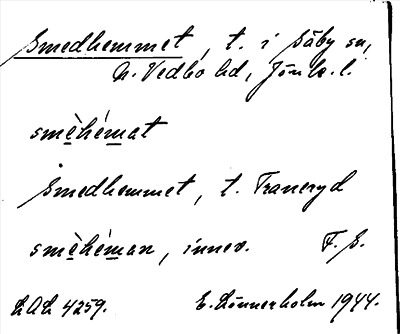 Smedhemmet, t. i Säby sn,
N. Vedbo hd, Jönk. l.
smèhém̲at
Smedhemmet, t. Traneryd
smèhém̲an, innev. F. S.
LAL 4259. E. Lönnerholm 1944.